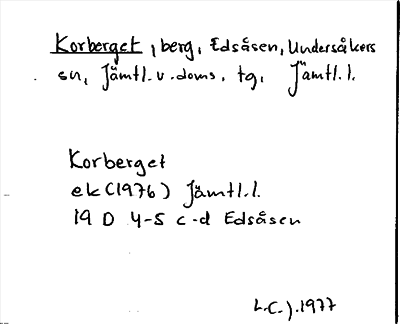 Korberget, berg, Edsåsen, Undersåkers
sn, Jämtl. v. doms. tg, Jämtl. l.
Korberget
ek (1976) Jämtl. l.
19 D 4-5 c-d Edsåsen
L.C.J. 1977